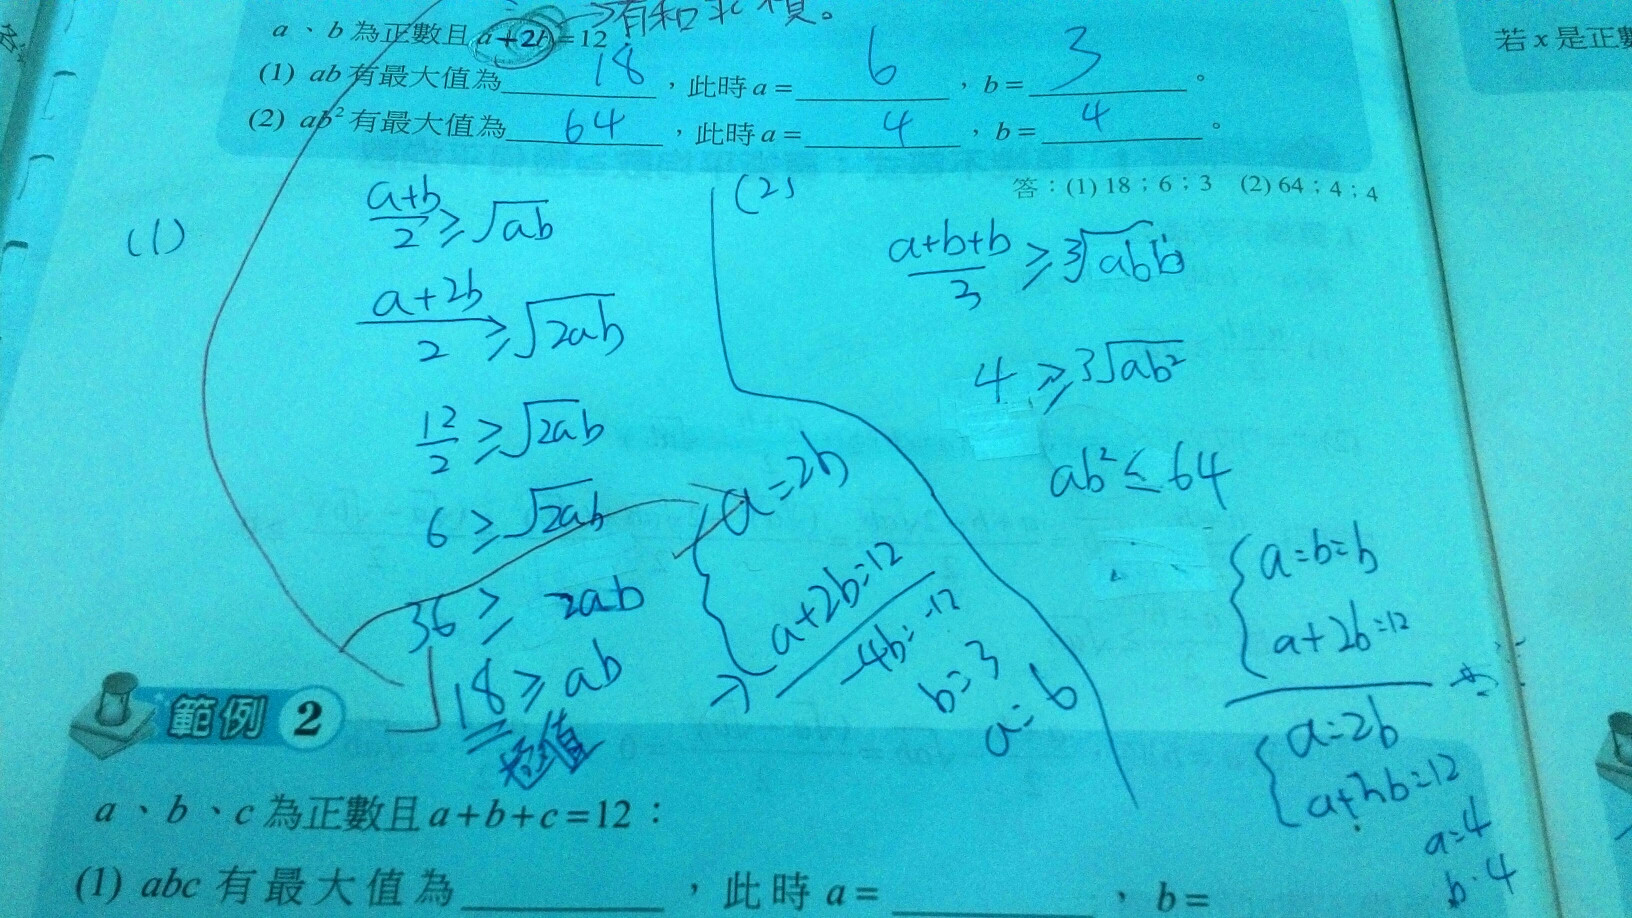 →有和求積。
a、b為正數且a+2b=12
(1) ab有最大值為 18 ，此時a= 6 ，b= 3 。
(2) ab²有最大值為 64 ，此時a= 4 ，b= 4 。
答：(1) 18；6；3 (2) 64；4；4
(1)
a+b/2 ≥ √ab
a+2b/2 ≥ √2ab
12/2 ≥ √2ab
6 ≥ √2ab
36 ≥ 2ab
18 ≥ ab
極值
a=2b
a+2b=12
⇒ -4b=-12
b=3
a=6
(2)
a+b+b/3 ≥ ³√abb
4 ≥ ³√ab²
ab² ≤ 64
a=b=b
a+2b=12
a=2b
a=4
b=4
範例 2
a、b、c為正數且a+b+c=12：
(1) abc有最大值為 ，此時a= ，b=
若x是正數